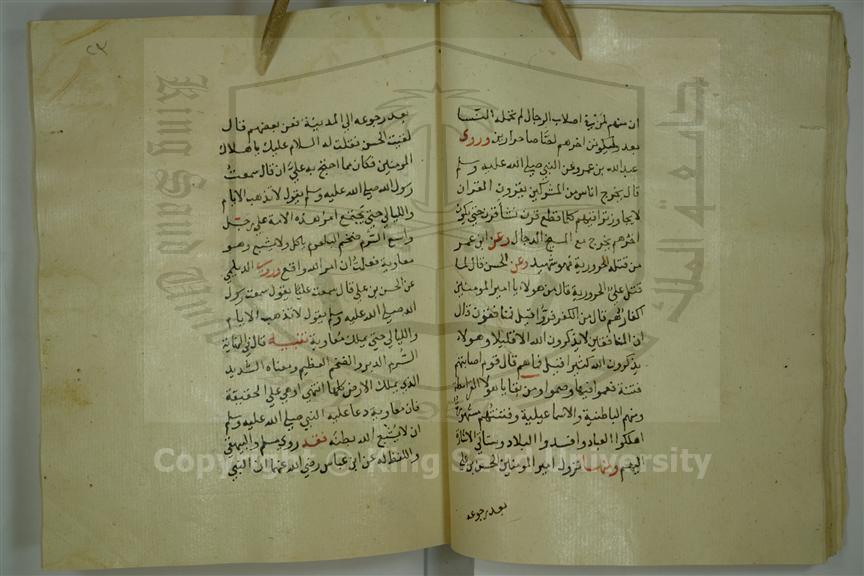 ان منهم لمن في اصلاب الرجال لم تحمله النسا
بعد وليكونن اخرهم لصاصا حرادين وروى
عبد الله بن عمرو عن النبي صلى الله عليه وسلم
قال يخرج اناس من المشركين يقرؤن القران
لا يجاوز تراقيهم كلما قطع قرن نشأ قرن حتى يكون
اخرهم يخرج مع المسيح الدجال وعن ابن عمر
من قتله الحرورية فهو شهيد وعن الحسن قال لما
قتل علي الحرورية قال من هولاء يا امير المومنين
اكفارهم قال من الكفر فروا قيل فمنافقون قال
ان المنافقين لا يذكرون الله الا قليلا وهولاء
يذكرون الله كثيرا قيل فما هم قال قوم اصابتهم
فتنة فعموا فيها وصموا ومن بقايا هولا القرامطة
ومنهم الباطنية والاسماعيلية وفتنتهم
اهلكوا العباد وافسدوا البلاد وستأتي الاشارة
اليهم ومنها نزول امير المومنين الحسن بن علي
بعد رجوعه
٢٣
بعد رجوعه الى المدينة فعن بعضهم قال
لقيت الحسن فقلت له السلام عليك يا مهلاك
المومنين فكان مما احتج به علي ان قال سمعت
رسول الله صلى الله عليه وسلم يقول لا تذهب الايام
والليالي حتى يجتمع امر هذه الامة على رجل
واسع السرم ضخم البلعوم ياكل ولا يشبع وهو
معاوية فعلمت ان امر الله واقع وروى الديلمي
عن الحسن بن علي قال سمعت عليا يقول سمعت رسول
الله صلى الله عليه وسلم يقول لا تذهب الايام
والليالي حتى يملك معاوية تنبيه قال في النهاية
السرم الدبر والضخم العظيم ومعناه الشديد
الذي يملك الارض كلها انتهى او هي على الحقيقة
فان معاوية دعا عليه النبي صلى الله عليه وسلم
ان لا يشبع الله بطنه فقد روى مسلم والبيهقي
واللفظ له عن ابن عباس رضي الله عنهما ان النبي
King Saud University
جامعة الملك
Copyright © King Saud University